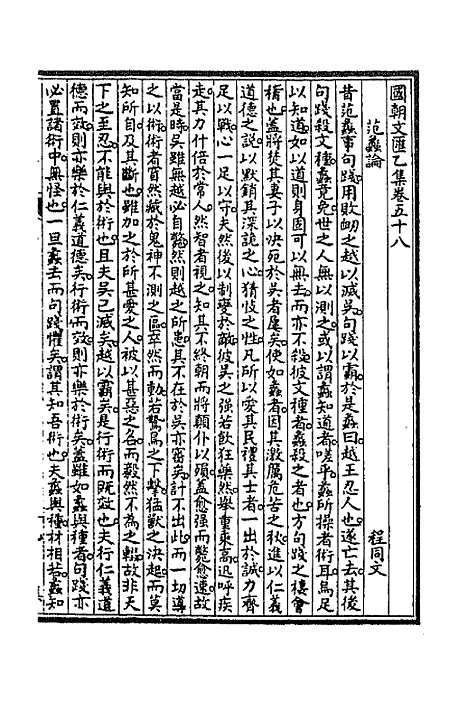 國朝文匯乙集卷五十八
范蠡論
程同文
昔范蠡事句踐用敗衂之越以滅吳句踐以霸於是蠡曰越王忍人也遂亡去其後
句踐殺文種蠡竟免世之人無以測之或以謂蠡知道者嗟乎蠡所操者術耳烏足
以知道如以道則身固可以無去而亦不殺彼文種者蠡殺之者也方句踐之棲會
稽也蓋將焚其妻子以決死於吳者屢矣使如蠡者因其激厲危苦之秋進以仁義
道德之說以默銷其深詭之心猜忮之性凡所以愛其民禮其士者一出於誠力齊
足以戰心一足以守夫然後以制變於敵彼吳之強若飲狂藥然舉重乘高迅呼疾
走其力什倍於常人然智者視之知其不終朝而將顛仆以殞蓋愈强而斃愈速故
當是時吳雖無越必自斃然則越之所患其不在於吳亦審矣計不出此而一切導
之以術術者窅然藏於鬼神不測之區卒然而動若鷙鳥之下擊猛獸之決起而莫
知所自及其斷也雖加之於所甚愛之人被以甚惡之名而毅然不為之輟故非天
下之至忍不能與於術也且夫吳已滅矣越以霸矣是行術而既效也夫行仁義道
德而效則亦樂於仁義道德矣行術而效則亦樂於術矣蓋雖如蠡與種者句踐亦
必置諸術中無怪也一旦蠡去而句踐懼矣謂其知吾術也夫蠡與種材相若蠡知